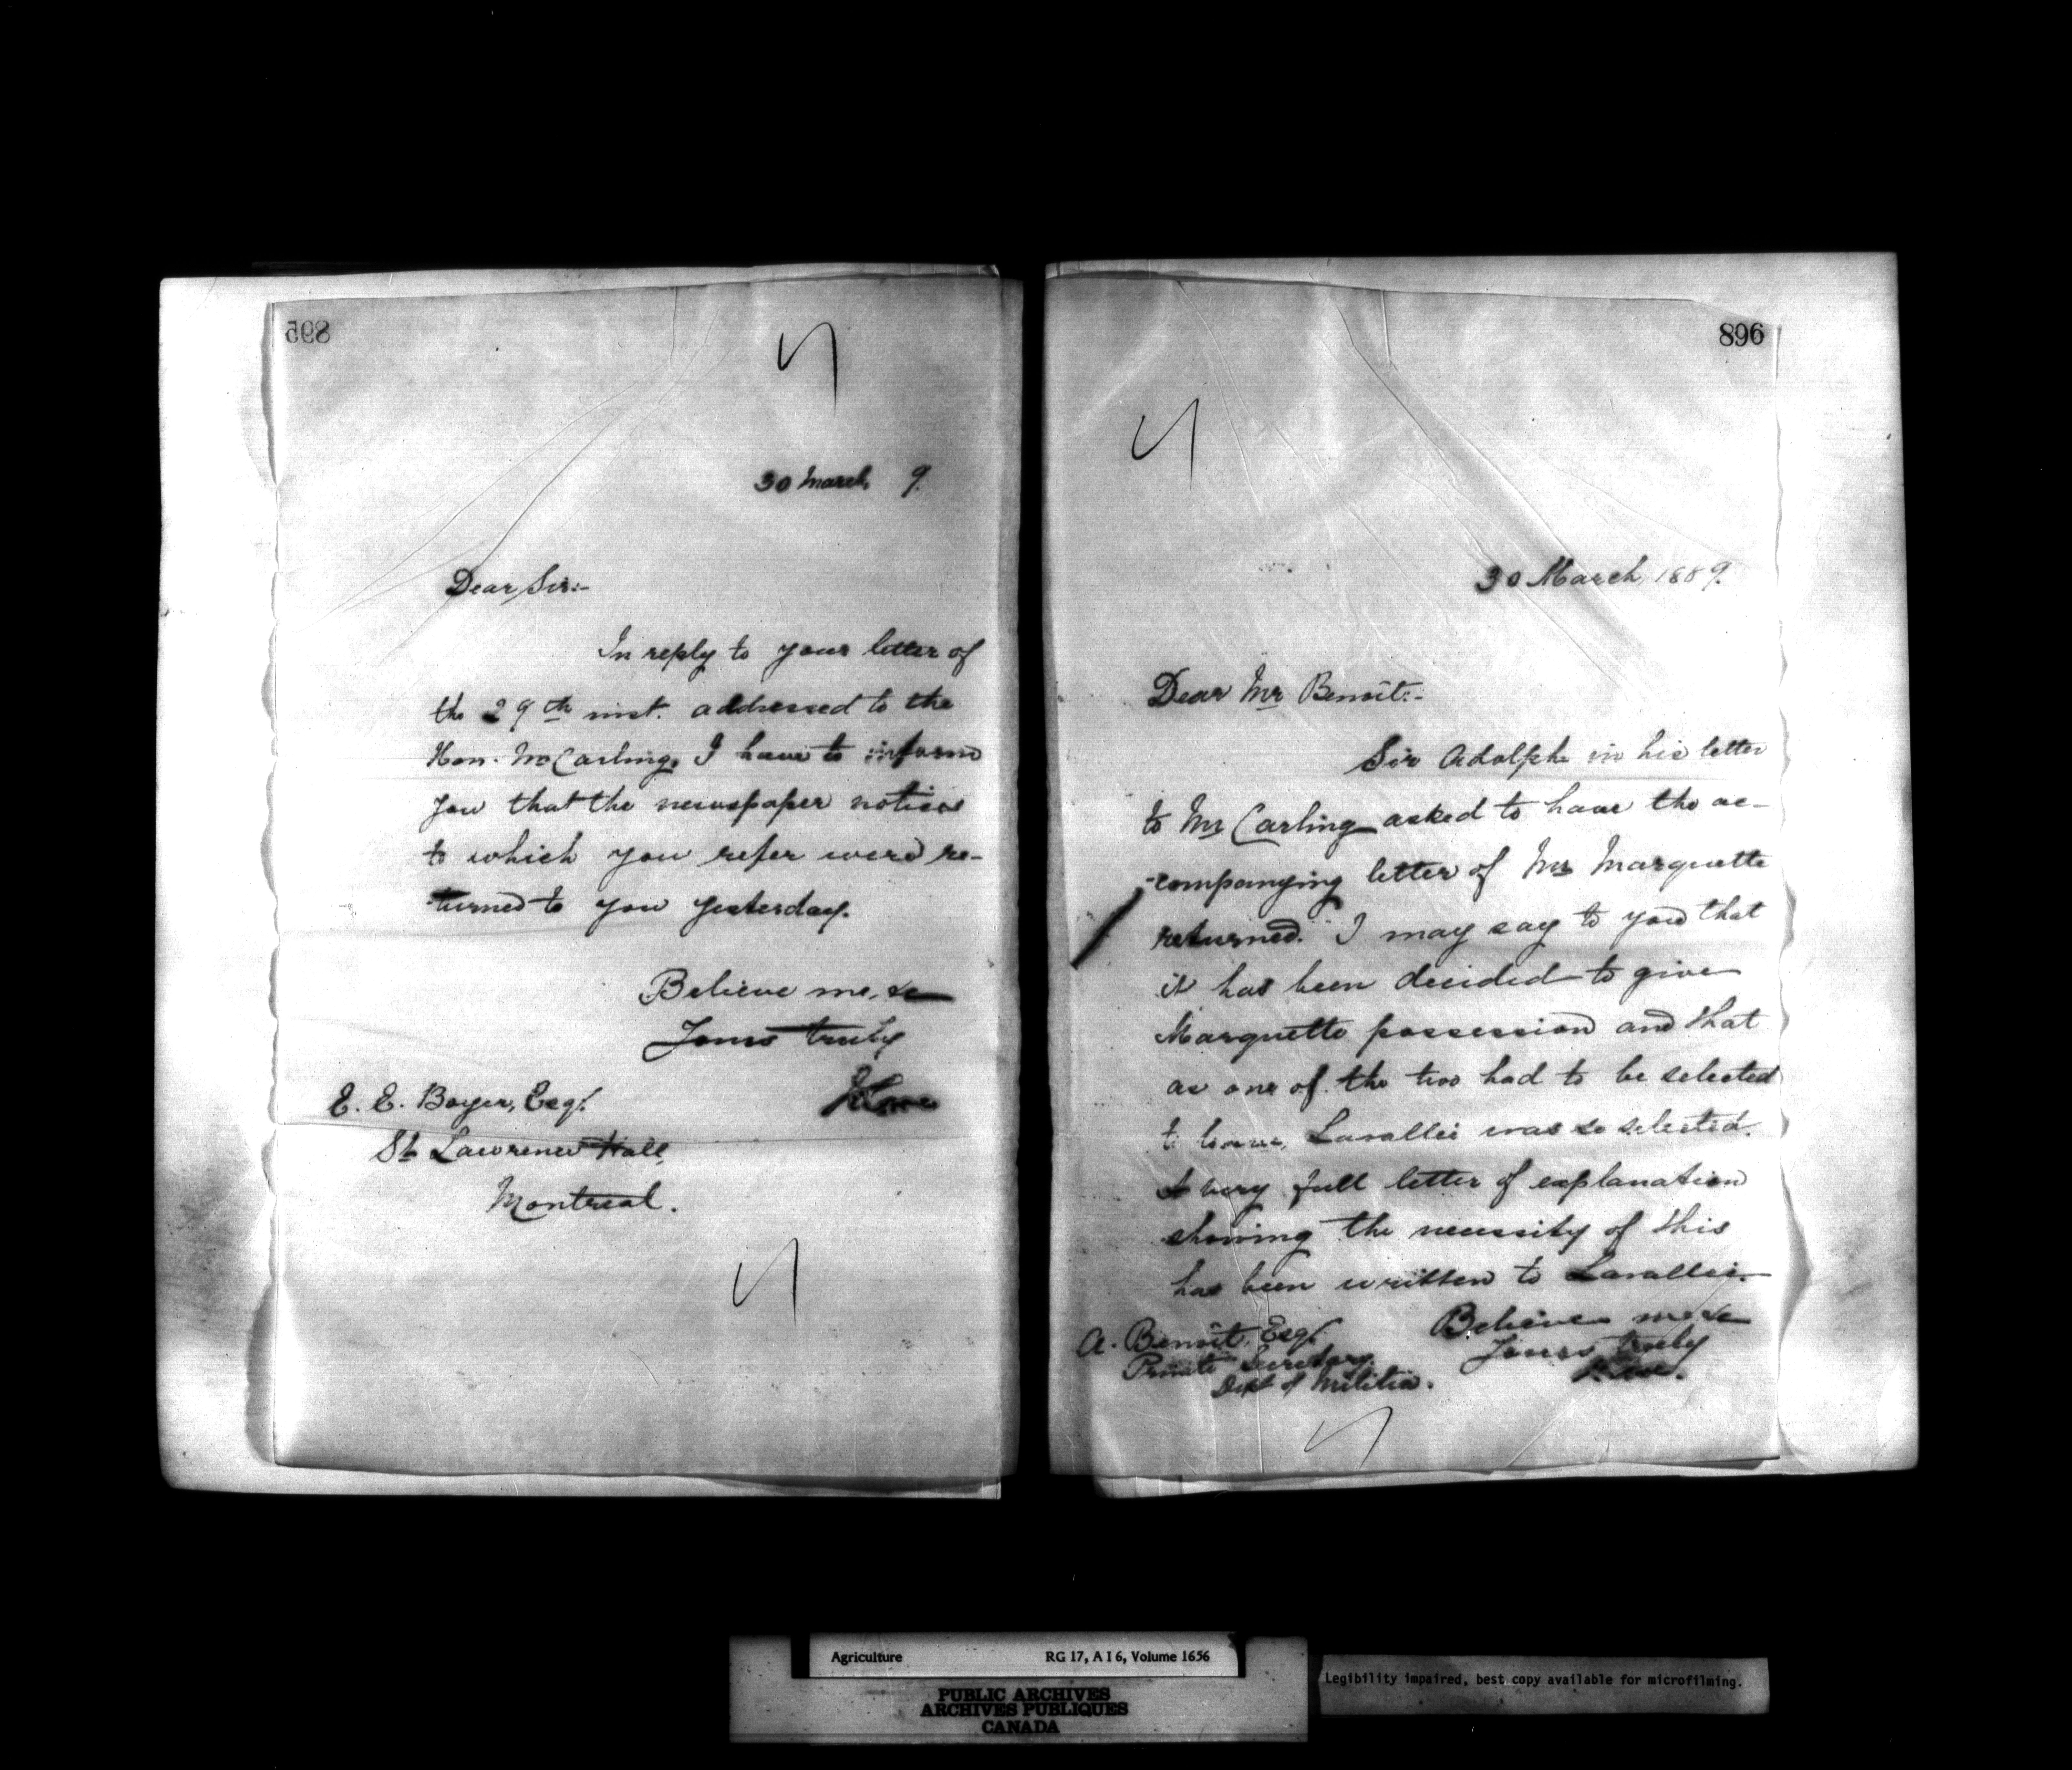 895
30 March, 9.
Dear Sir:-
In reply to your letter of
the 29th inst. addressed to the
Hon. Mr Carling, I have to inform
you that the newspaper notices
to which you refer were re-
turned to you yesterday.
Believe me, &c
Yours truly
E. E. Boyer, Esq.
St Lawrence Hall,
Montreal.
896
30 March, 1889.
Dear Mr Benoit:-
Sir Adolphe in his letter
to Mr Carling asked to have the ac-
-companying letter of Mr Marquette
returned. I may say to you that
it has been decided to give
Marquette possession and that
as one of the two had to be selected
to leave, Lavallée was so selected.
A very full letter of explanation
showing the necessity of this
has been written to Lavallée.
Believe me &c
Yours truly
A. Benoit, Esq.
Private Secretary.
Dept of Militia.
Agriculture RG 17, A I 6, Volume 1656
PUBLIC ARCHIVES
ARCHIVES PUBLIQUES
CANADA
Legibility impaired, best copy available for microfilming.